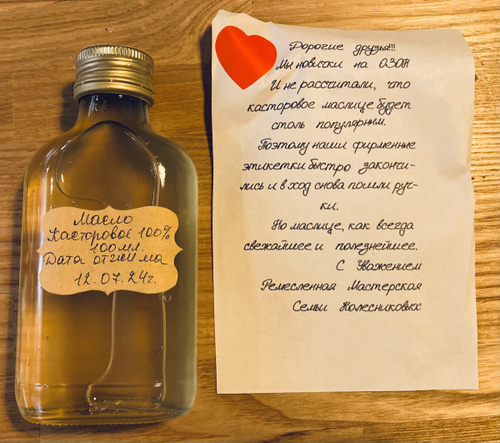 Масло
Касторовое 100%
100мл.
Дата отжима
12.07.24г.
Дорогие друзья!!!
Мы новички на ОЗОН
И не рассчитали, что
касторовое маслице будет
столь популярным.
Поэтому наши фирменные
этикетки быстро закончи-
лись и в ход снова пошли руч-
ки.
Но маслице, как всегда
свежайшее и полезнейшее.
С Уважением
Ремесленная Мастерская
Семьи Колесниковых